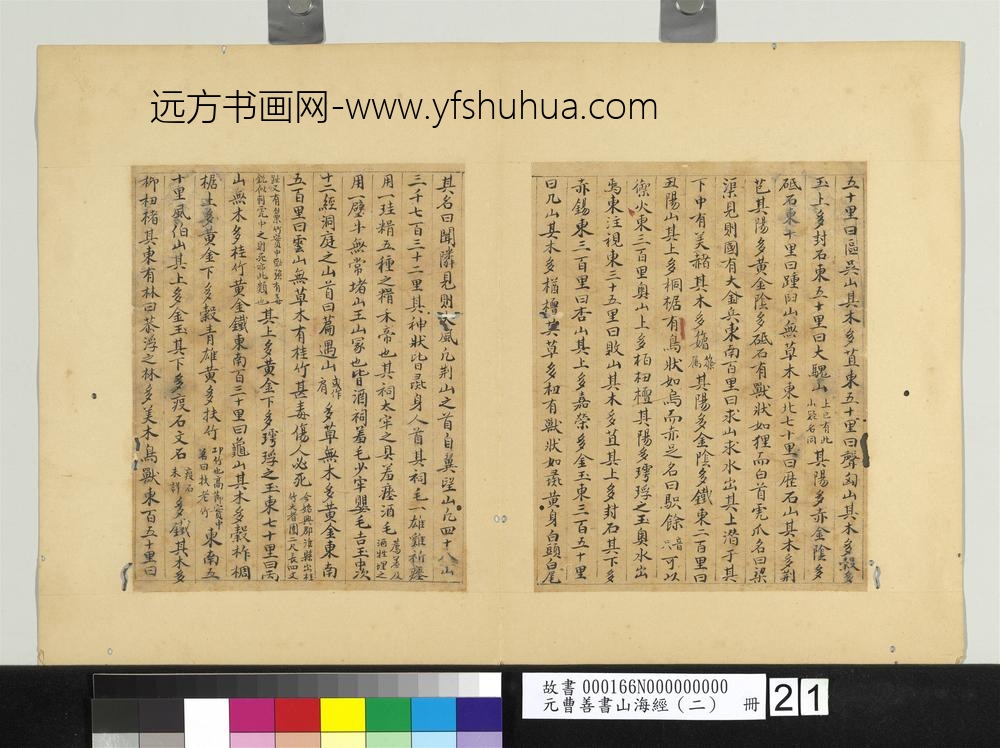 远方书画网-www.yfshuhua.com
五十里曰區吳山其木多苴東五十里曰聲匈山其木多穀多
玉上多封石東五十里曰大騩山上已有此山疑名同其陽多赤金陰多
砥石東十里曰踵臼山無草木東北七十里曰歷石山其木多荆
芑其陽多黃金陰多砥石有獸狀如狸而白首虎爪名曰梁
渠見則國有大兵東南百里曰求山求水出其上潛于其
下中有美赭其木多其陽多金陰多鐵東二百里曰
丑陽山其上多桐椐有鳥狀如烏而赤足名曰駅餘音可以
禦火東三百里奧山上多柏杻檀其陽多㻬琈之玉奧水出
焉東注視東三十五里曰敗山其木多苴其上多封石其下多
赤錫東三百里曰杏山其上多嘉榮多金玉東三百五十里
曰几山其木多楢檀其草多杻有獸狀如彘黃身白頭白尾
其名曰聞隣見則大風凡荆山之首自翼望山凡四十八山
三千七百三十二里其神狀皆彘身人首其祠毛一雄雞祈瘞
用一珪糈五種之糈禾帝也其祠太牢之具羞瘞酒毛
用一璧牛無常堵山王山冢也皆酒祠羞毛少牢嬰毛吉玉次
十二經洞庭之山首曰篇遇山或作肩多草無木多黃金東南
五百里曰雲山無草木有桂竹甚毒傷人必死今始興郡出桂竹大者圍二尺長四丈
其上多黃金下多㻬琈之玉東七十里曰丙
山無木多桂竹黃金鐵東南百三十里曰龜山其木多穀柞椆
椐上多黃金下多穀青雄黃多扶竹卭竹也高節實中名曰扶老竹東南五
十里風伯山其上多金玉其下多疫石文石疫石未詳多鐵其木多
柳杻楮其東有林曰莽浮之林多美木鳥獸東百五十里曰
故書 000166N000000000
元曹善書山海經（二） 冊
21